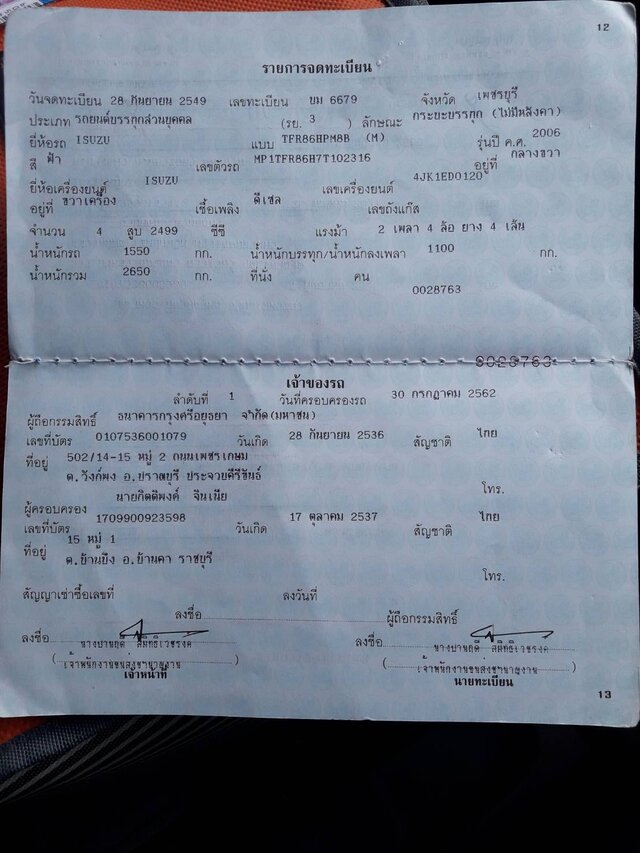 12
รายการจดทะเบียน
วันจดทะเบียน 28 กันยายน 2549 เลขทะเบียน บม 6679 จังหวัด เพชรบุรี
ประเภท รถยนต์บรรทุกส่วนบุคคล (รย. 3 ) ลักษณะ กระบะบรรทุก (ไม่มีหลังคา)
ยี่ห้อรถ ISUZU แบบ TFR86HPM8B (M) รุ่นปี ค.ศ. 2006
สี ฟ้า เลขตัวรถ MP1TFR86H7T102316 อยู่ที่ กลางขวา
ยี่ห้อเครื่องยนต์ ISUZU เลขเครื่องยนต์ 4JK1ED0120
อยู่ที่ ขวาเครื่อง เชื้อเพลิง ดีเซล เลขถังแก๊ส
จำนวน 4 สูบ 2499 ซีซี แรงม้า 2 เพลา 4 ล้อ ยาง 4 เส้น
น้ำหนักรถ 1550 กก. น้ำหนักบรรทุก/น้ำหนักลงเพลา 1100 กก.
น้ำหนักรวม 2650 กก. ที่นั่ง คน
0028763
0028763
เจ้าของรถ
ลำดับที่ 1 วันที่ครอบครองรถ 30 กรกฎาคม 2562
ผู้ถือกรรมสิทธิ์ ธนาคารกรุงศรีอยุธยา จำกัด(มหาชน)
เลขที่บัตร 0107536001079 วันเกิด 28 กันยายน 2536 สัญชาติ ไทย
ที่อยู่ 502/14-15 หมู่ 2 ถนนเพชรเกษม
ต.วังก์พง อ.ปราณบุรี ประจวบคีรีขันธ์ โทร.
ผู้ครอบครอง นายกิตติพงค์ จีนเมีย
เลขที่บัตร 1709900923598 วันเกิด 17 ตุลาคม 2537 สัญชาติ ไทย
ที่อยู่ 15 หมู่ 1
ต.บ้านบึง อ.บ้านคา ราชบุรี
โทร.
สัญญาเช่าซื้อเลขที่ ลงวันที่
ลงชื่อ ผู้ถือกรรมสิทธิ์
ลงชื่อ ลงชื่อ
(เจ้าพนักงานขนส่งชำนาญงาน) (เจ้าพนักงานขนส่งชำนาญงาน)
เจ้าหน้าที่ นายทะเบียน
13